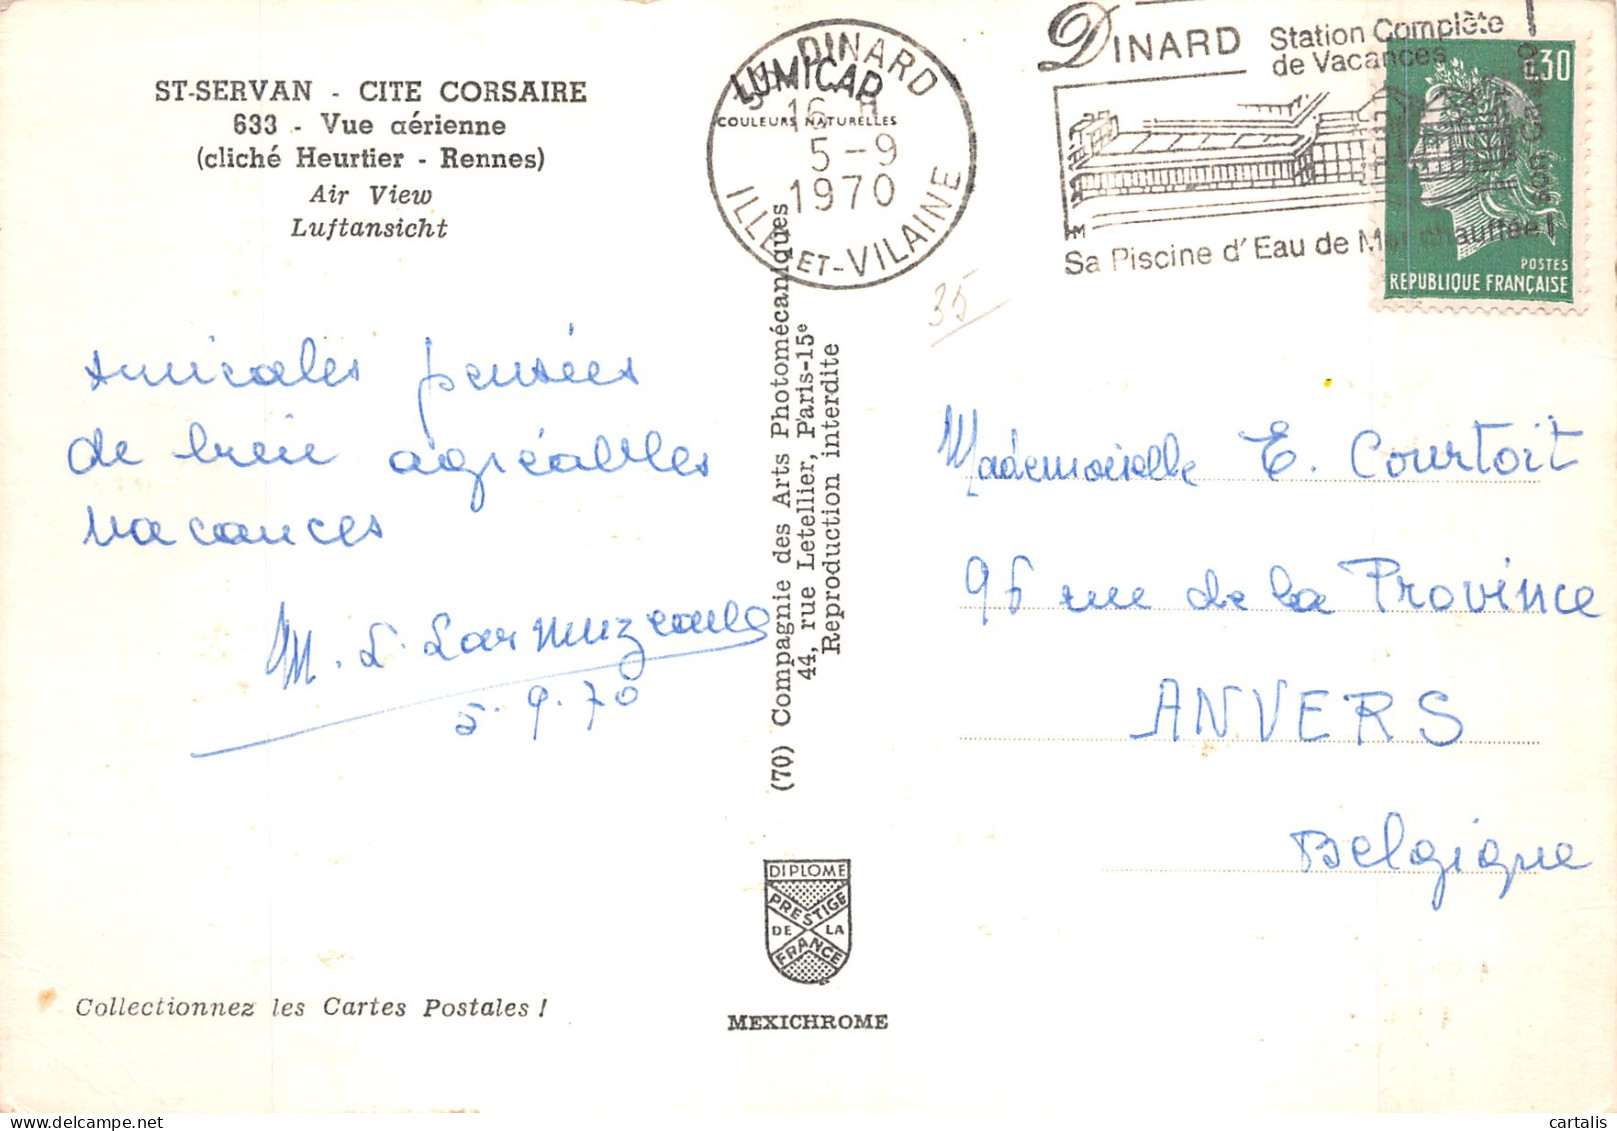 ST-SERVAN - CITE CORSAIRE
633 - Vue aérienne
(cliché Heurtier - Rennes)
Air View
Luftansicht
Amicales pensées
de bien agréables
vacances
5.9.70
Collectionnez les Cartes Postales !
LUMICAP
COULEURS NATURELLES
DINARD
16 H
5-9
1970
ILLE-ET-VILAINE
(70) Compagnie des Arts Photomécaniques
44, rue Letellier, Paris-15e
Reproduction interdite
DIPLOME
PRESTIGE
DE LA
FRANCE
MEXICHROME
DINARD Station Complète
de Vacances
Sa Piscine d'Eau de Mer chauffée
0,30
POSTES
REPUBLIQUE FRANÇAISE
35
Mademoiselle E. Courtoit
96 rue de la Province
ANVERS
Belgique
cartalis